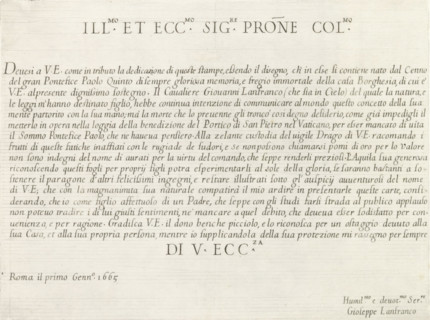 ILL.MO ET ECC.MO SIG.RE PRONE COL.MO
Deuesi a V.E. come in tributo la dedicazione di queste stampe, essendo il disegno, ch'in esse si contiene nato dal Cenno
del gran Pontefice Paolo Quinto di sempre gloriosa memoria, e fregio immortale della casa Borghesia, di cui e'
V.E. al presente dignissimo sostegno. Il Caualiere Giouanni Lanfranco (che sia in Cielo) del quale la natura, e
le leggi m'hanno destinato figlio, hebbe continua intenzione di communicare al mondo questo concetto della sua
mente partorito con la sua mano; ma la morte che lo preuenne gli troncò così degno desiderio, come già impedigli il
metterlo in opera nella loggia della benedizione del Portico di San Pietro nel Vaticano, per esser mancato di uita
il Sommo Pontefice Paolo che ne haueua pensiero. Alla zelante custodia del uigile Drago di V.E. racomando i
frutti di queste fatiche inaffiati con le rugiade de sudori, e se non posono chiamarsi pomi di oro per lo ualore
non sono indegni del nome di aurati per la uirtu del comando, che seppe renderli preziosi. L'Aquila sua generosa
riconoscendo questi fogli per propri figli potrà esperimentarli al sole della gloria, se saranno bastanti a so-
stenere il paragone d'altri felicissimi ingegni, e restare illustrati sotto gl'auspicij auuenturosi del nome
di V.E.; che con la magnanimità sua naturale compatirà il mio ardire in presentarle queste carte, consi-
derando, che io come figlio affettuoso di un Padre, che seppe con gli studi farsi strada al publico applauso
non poteuo tradire i di lui giusti sentimenti, ne' mancare a quel debito, che doueua esser sodisfatto per con-
uenienza, e per ragione. Gradisca V.E. il dono benche picciolo, e lo riconosca per un ostaggio deuuto alla
sua Casa, et alla sua propria persona, mentre io supplicandola della sua protezione mi rassegno per sempre
DI V. ECC.ZA
Roma il primo Genn.o 1665
Humil.mo e deuot.mo Ser.re
Gioseppe Lanfranco